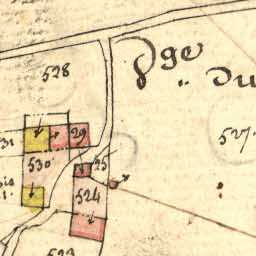 dge
528
.. du
527.
29
31
530
25
524
523